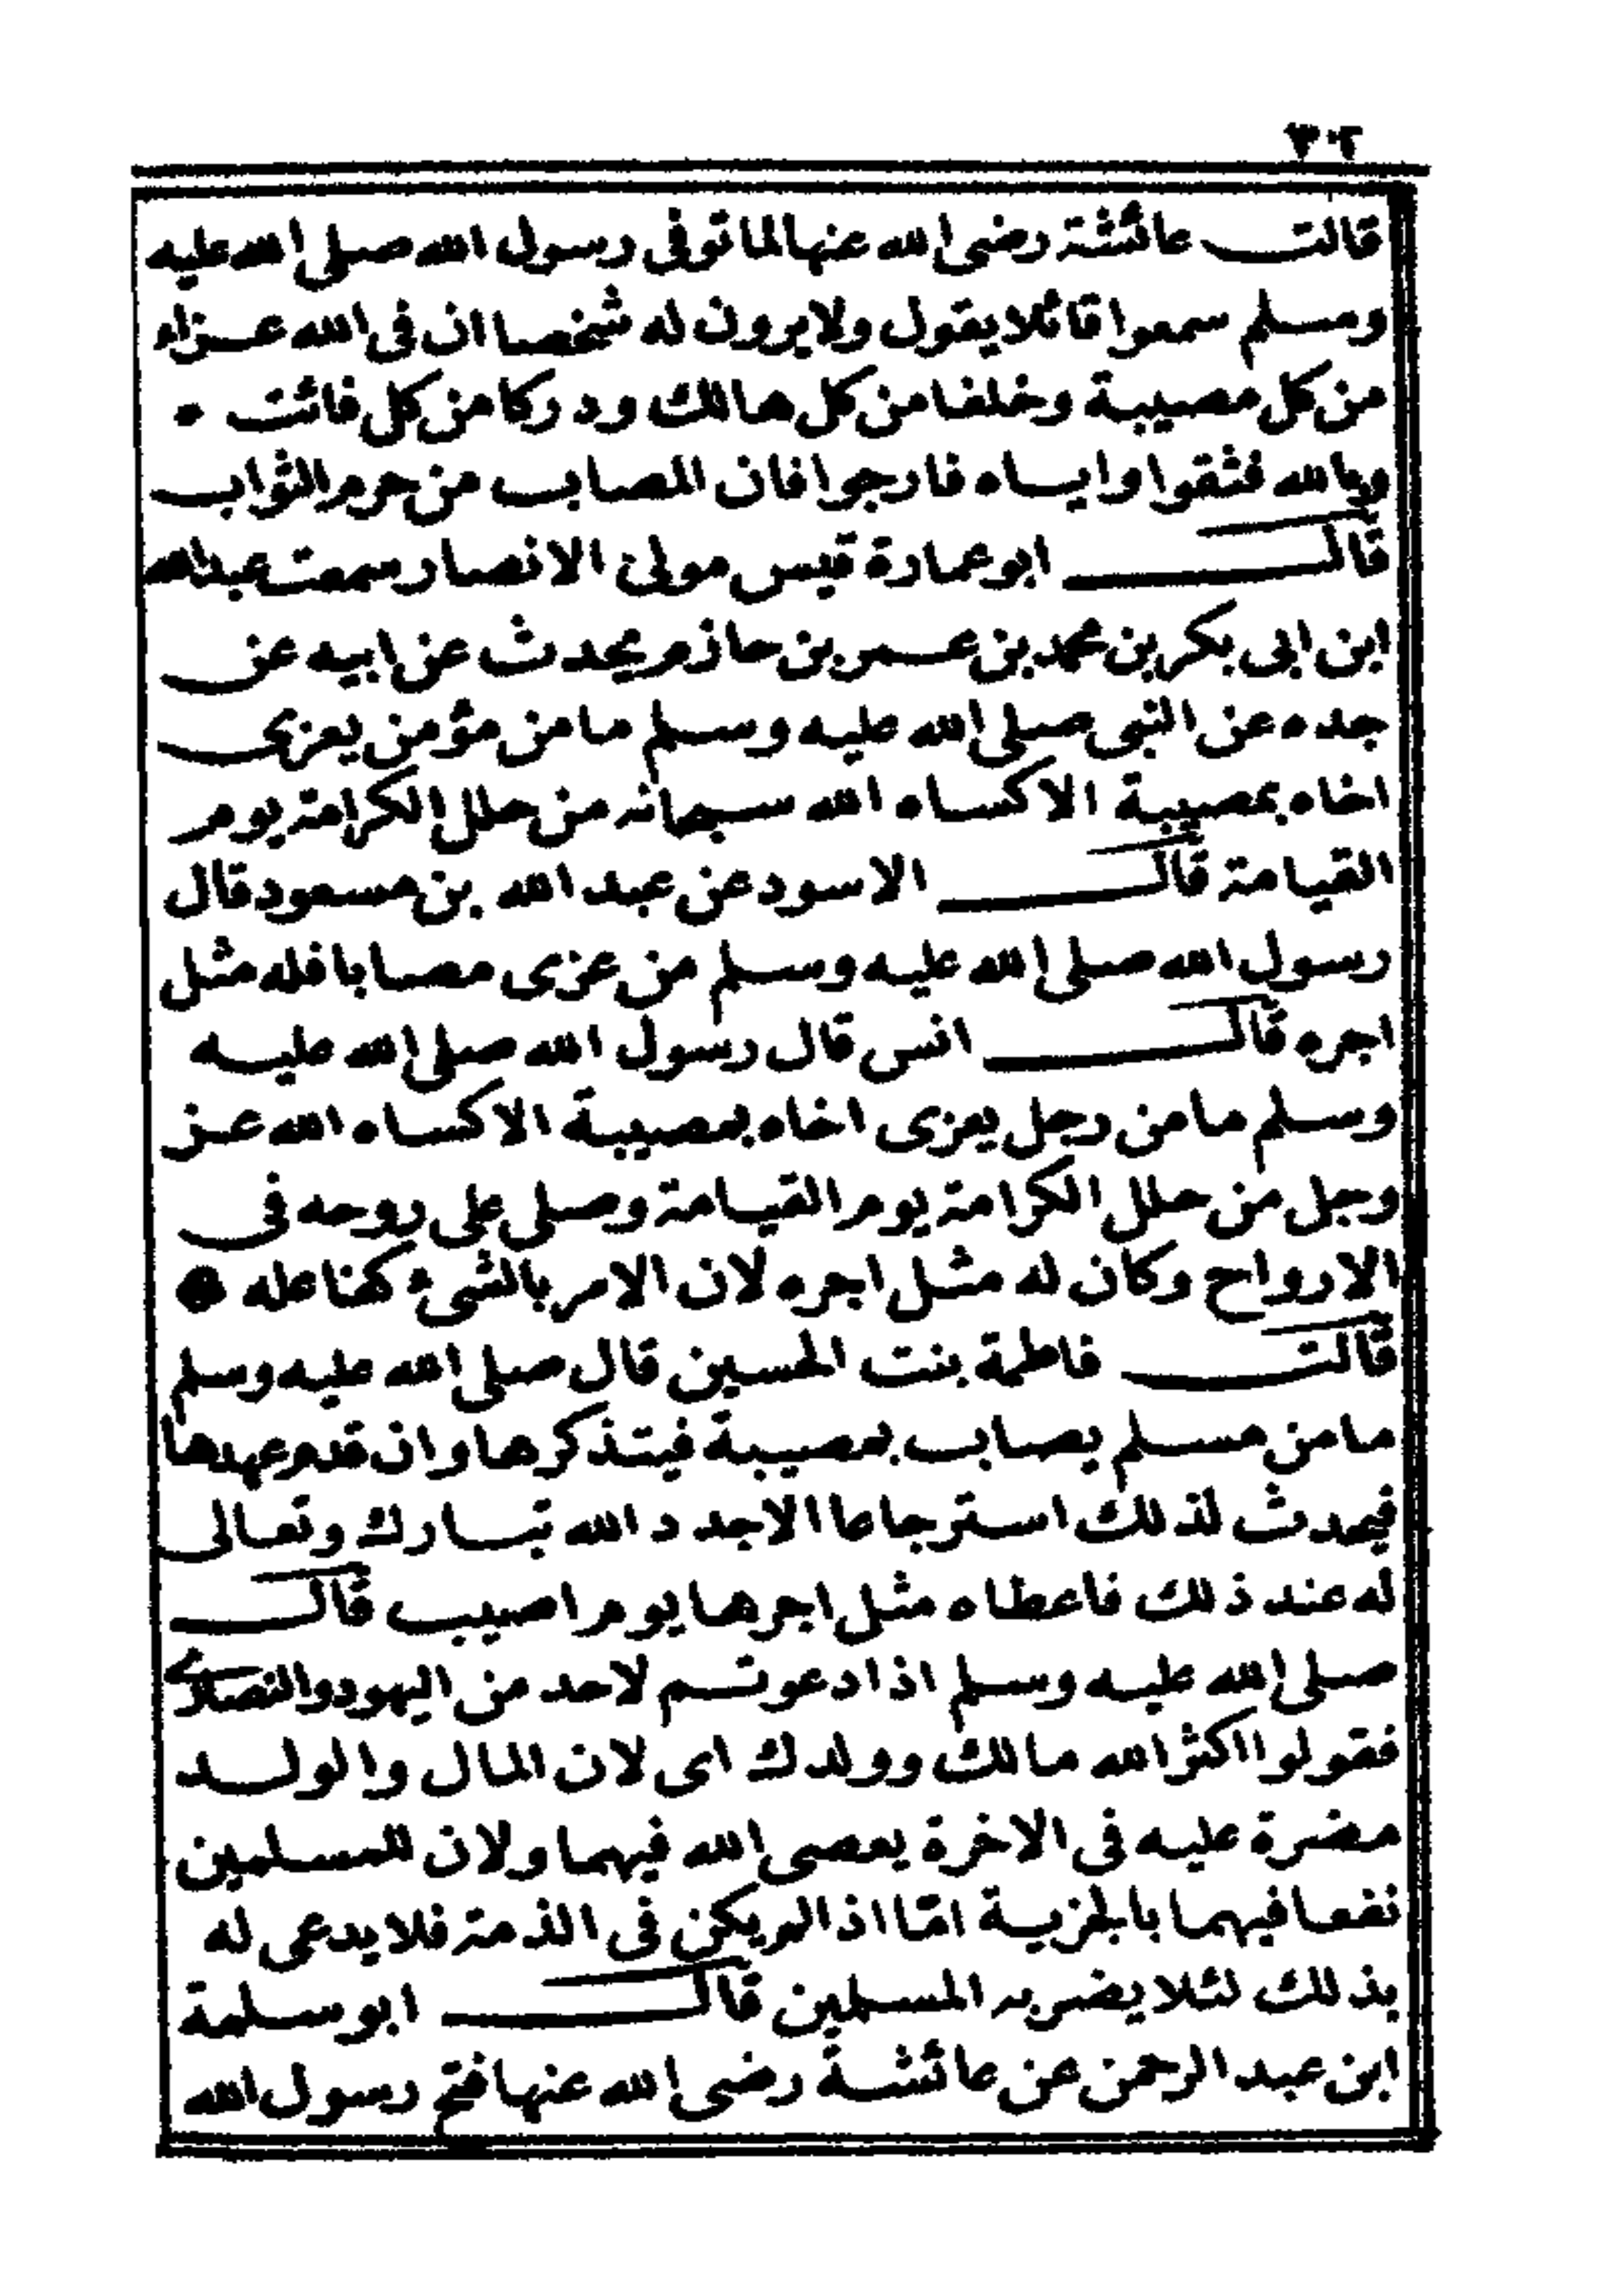 ٣٠٢
قالت عائشة رضى الله عنها لما توفى رسول الله صلى الله عليه
وسلم سمعوا قائلا يقول ولا يرون له شخصا ان فى الله عزاء
من كل مصيبة وخلفا من كل هالك ودركا من كل فائت •
وبالله فثقوا واياه فارجوا فان المصاب من حرم الثواب
قال ابو عمارة قيس مولى الانصار سمعت عبدالله
ابن ابى بكر بن محمد بن عمر بن حازم يحدث عن ابيه عن
جده عن النبى صلى الله عليه وسلم ما من مؤمن يعزى
اخاه بمصيبة الا كساه الله سبحانه من حلل الكرامة يوم
القيامة قال الاسود عن عبد الله بن مسعود قال
رسول الله صلى الله عليه وسلم من عزى مصابا فله مثل
اجره قال انس قال رسول الله صلى الله عليه
وسلم ما من رجل يعزى اخاه بمصيبة الا كساه الله عز
وجل من حلل الكرامة يوم القيامة وصلى على روحه فى
الارواح وكان له مثل اجره لان الامر بالشىء كفاعله
قالت فاطمة بنت الحسين قال صلى الله عليه وسلم
ما من مسلم يصاب بمصيبة فيتذكرها وان قدم عهدها
فيحدث لذلك استرجاعا الا جدد الله تبارك وتعالى
له عند ذلك فاعطاه مثل اجرها يوم اصيب قال
صلى الله عليه وسلم اذا دعوتم لاحد من اليهود والنصارى
فقولوا اكثر الله مالك وولدك اى لان المال والولد
مضرة عليه فى الاخرة يعصى الله فيهما ولان للمسلمين
نفعا فيهما بالجزية امّا اذا لم يكن فى الذمة فلا يدعى له
بذلك لئلا يضر به المسلمين قال ابو سلمة
ابن عبد الرحمن عن عائشة رضى الله عنها فتح رسول الله